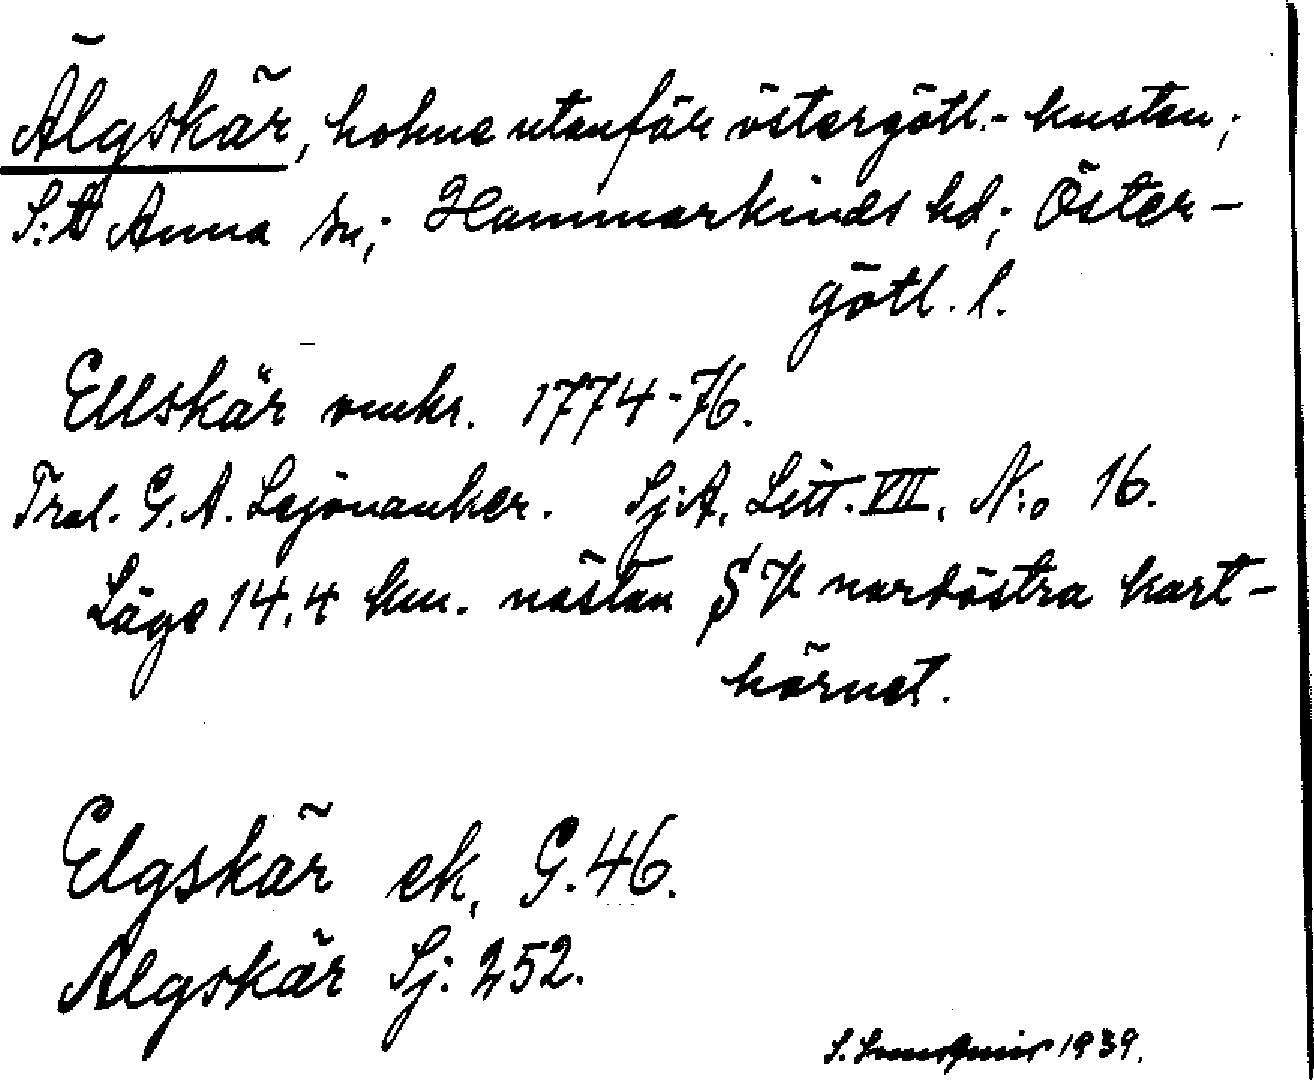 Älgskär, holme utanför östergötl.- kusten;
S:t Anna sn; Hammarkinds hd; Öster-
götl. l.
Ellskär omkr. 1774-76.
Tral. G. A. Lejonanker. Sj:A. Litt. VII. N:o 16.
Läge 14,4 km. nästan § V nordöstra kart-
hörnet.
Elgskär ek. G. 46.
Algskär Sj: 252.
S. 1939.